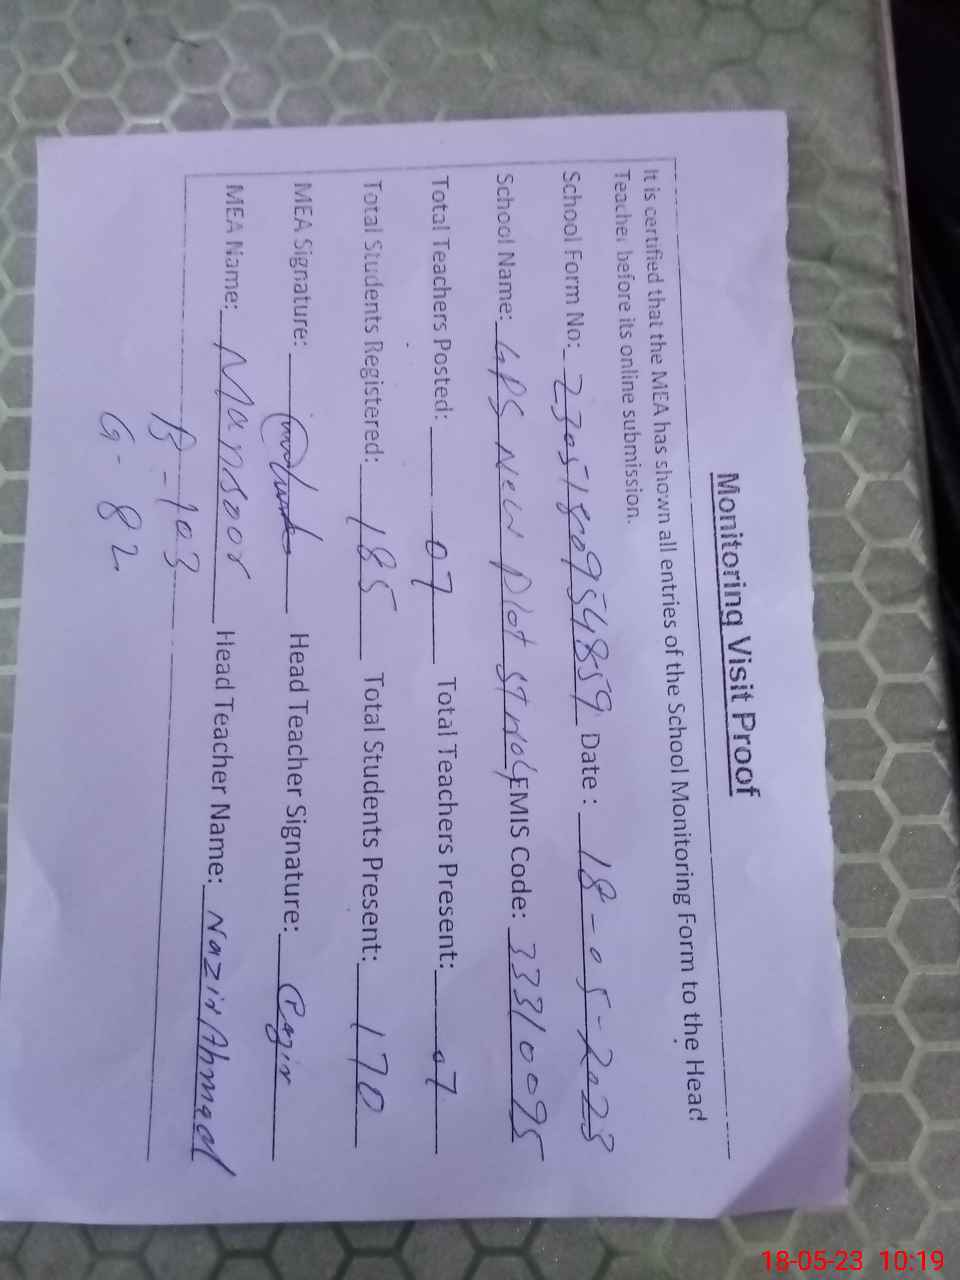 Monitoring Visit Proof
It is certified that the MEA has shown all entries of the School Monitoring Form to the Head
Teacher before its online submission.
School Form No: 2305180954859 Date: 18-05-2023
School Name: GPS New Plot St No EMIS Code: 33310095
Total Teachers Posted: 07 Total Teachers Present: 07
Total Students Registered: 185 Total Students Present: 170
MEA Signature: Head Teacher Signature:
MEA Name: Mansoor Head Teacher Name: Nazir Ahmad
B-103
G-82
18-05-23 10:19